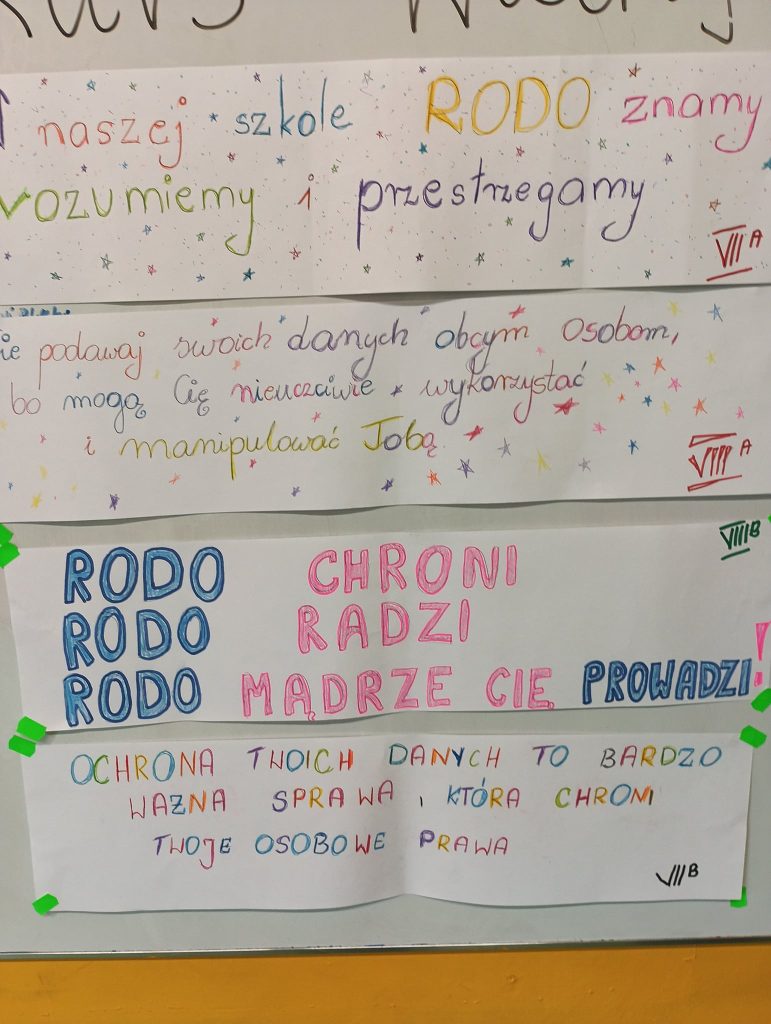 naszej szkole RODO znamy
rozumiemy i przestrzegamy
VII A
podawaj swoich danych obcym osobom,
bo mogą Cię nieuczciwie wykorzystać
i manipulować Tobą
VIII A
VIII B
RODO CHRONI
RODO RADZI
RODO MĄDRZE CIĘ PROWADZI!
OCHRONA TWOICH DANYCH TO BARDZO
WAŻNA SPRAWA, KTÓRA CHRONI
TWOJE OSOBOWE PRAWA
VII B